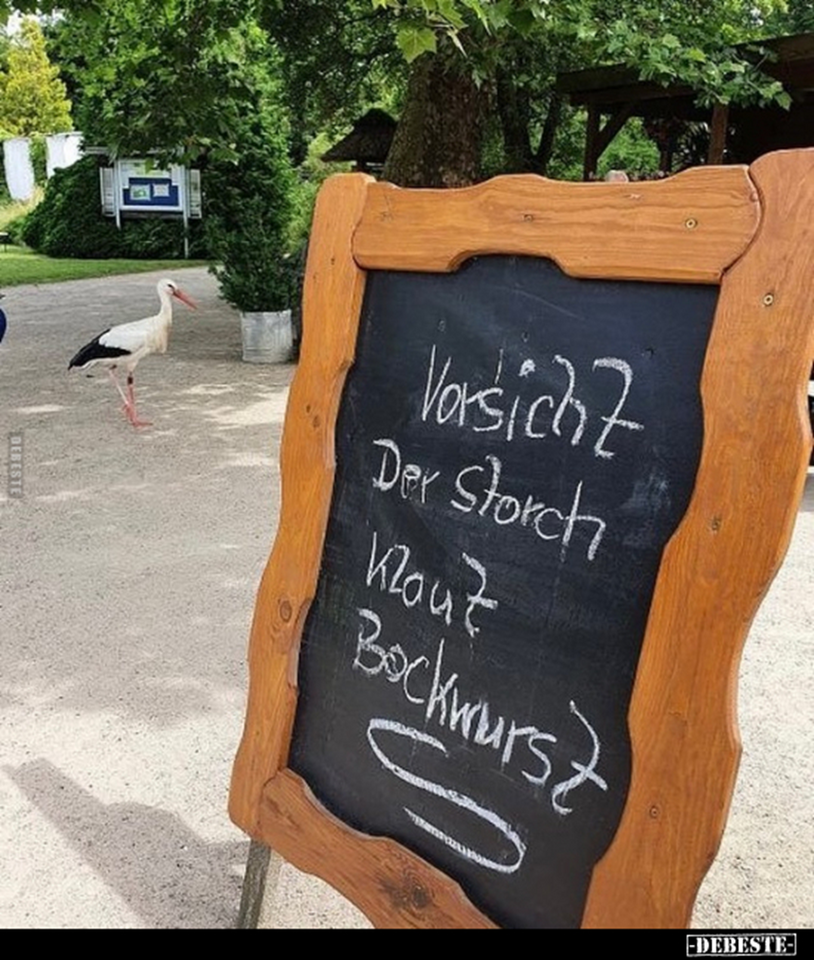 Vorsicht
Der Storch
klaut
Bockwurst
-DEBESTE-
DEBESTE